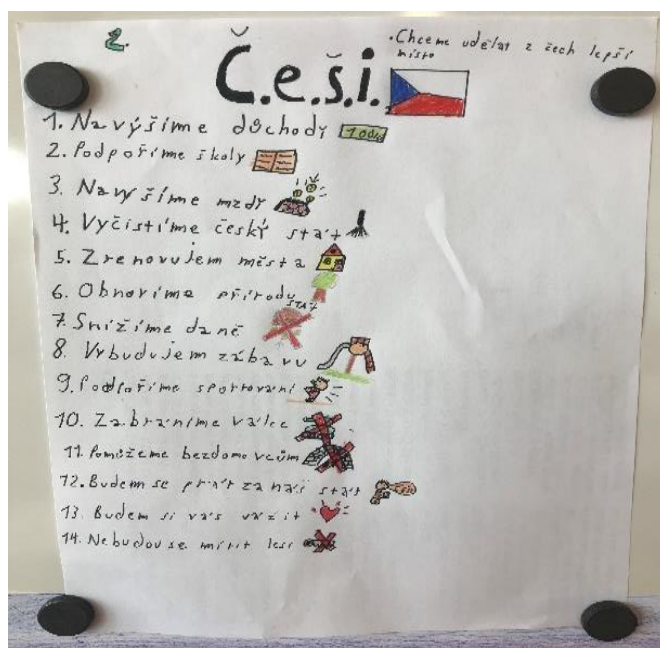 2.
Č.e.š.i.
• Chceme udělat z čech lepší
místo
1. Navýšíme důchody
2. Podpoříme školy
3. Navýšíme mzdy
4. Vyčistíme český stát
5. Zrenovujem města
6. Obnovíme přírodu
STAT
7. Snížíme daně
8. Vybudujem zábavu
9. Podpoříme sportování
10. Zabráníme válce
11. Pomůžeme bezdomovcům
12. Budem se prát za náš stát
13. Budem si vás vážit
14. Nebudou se